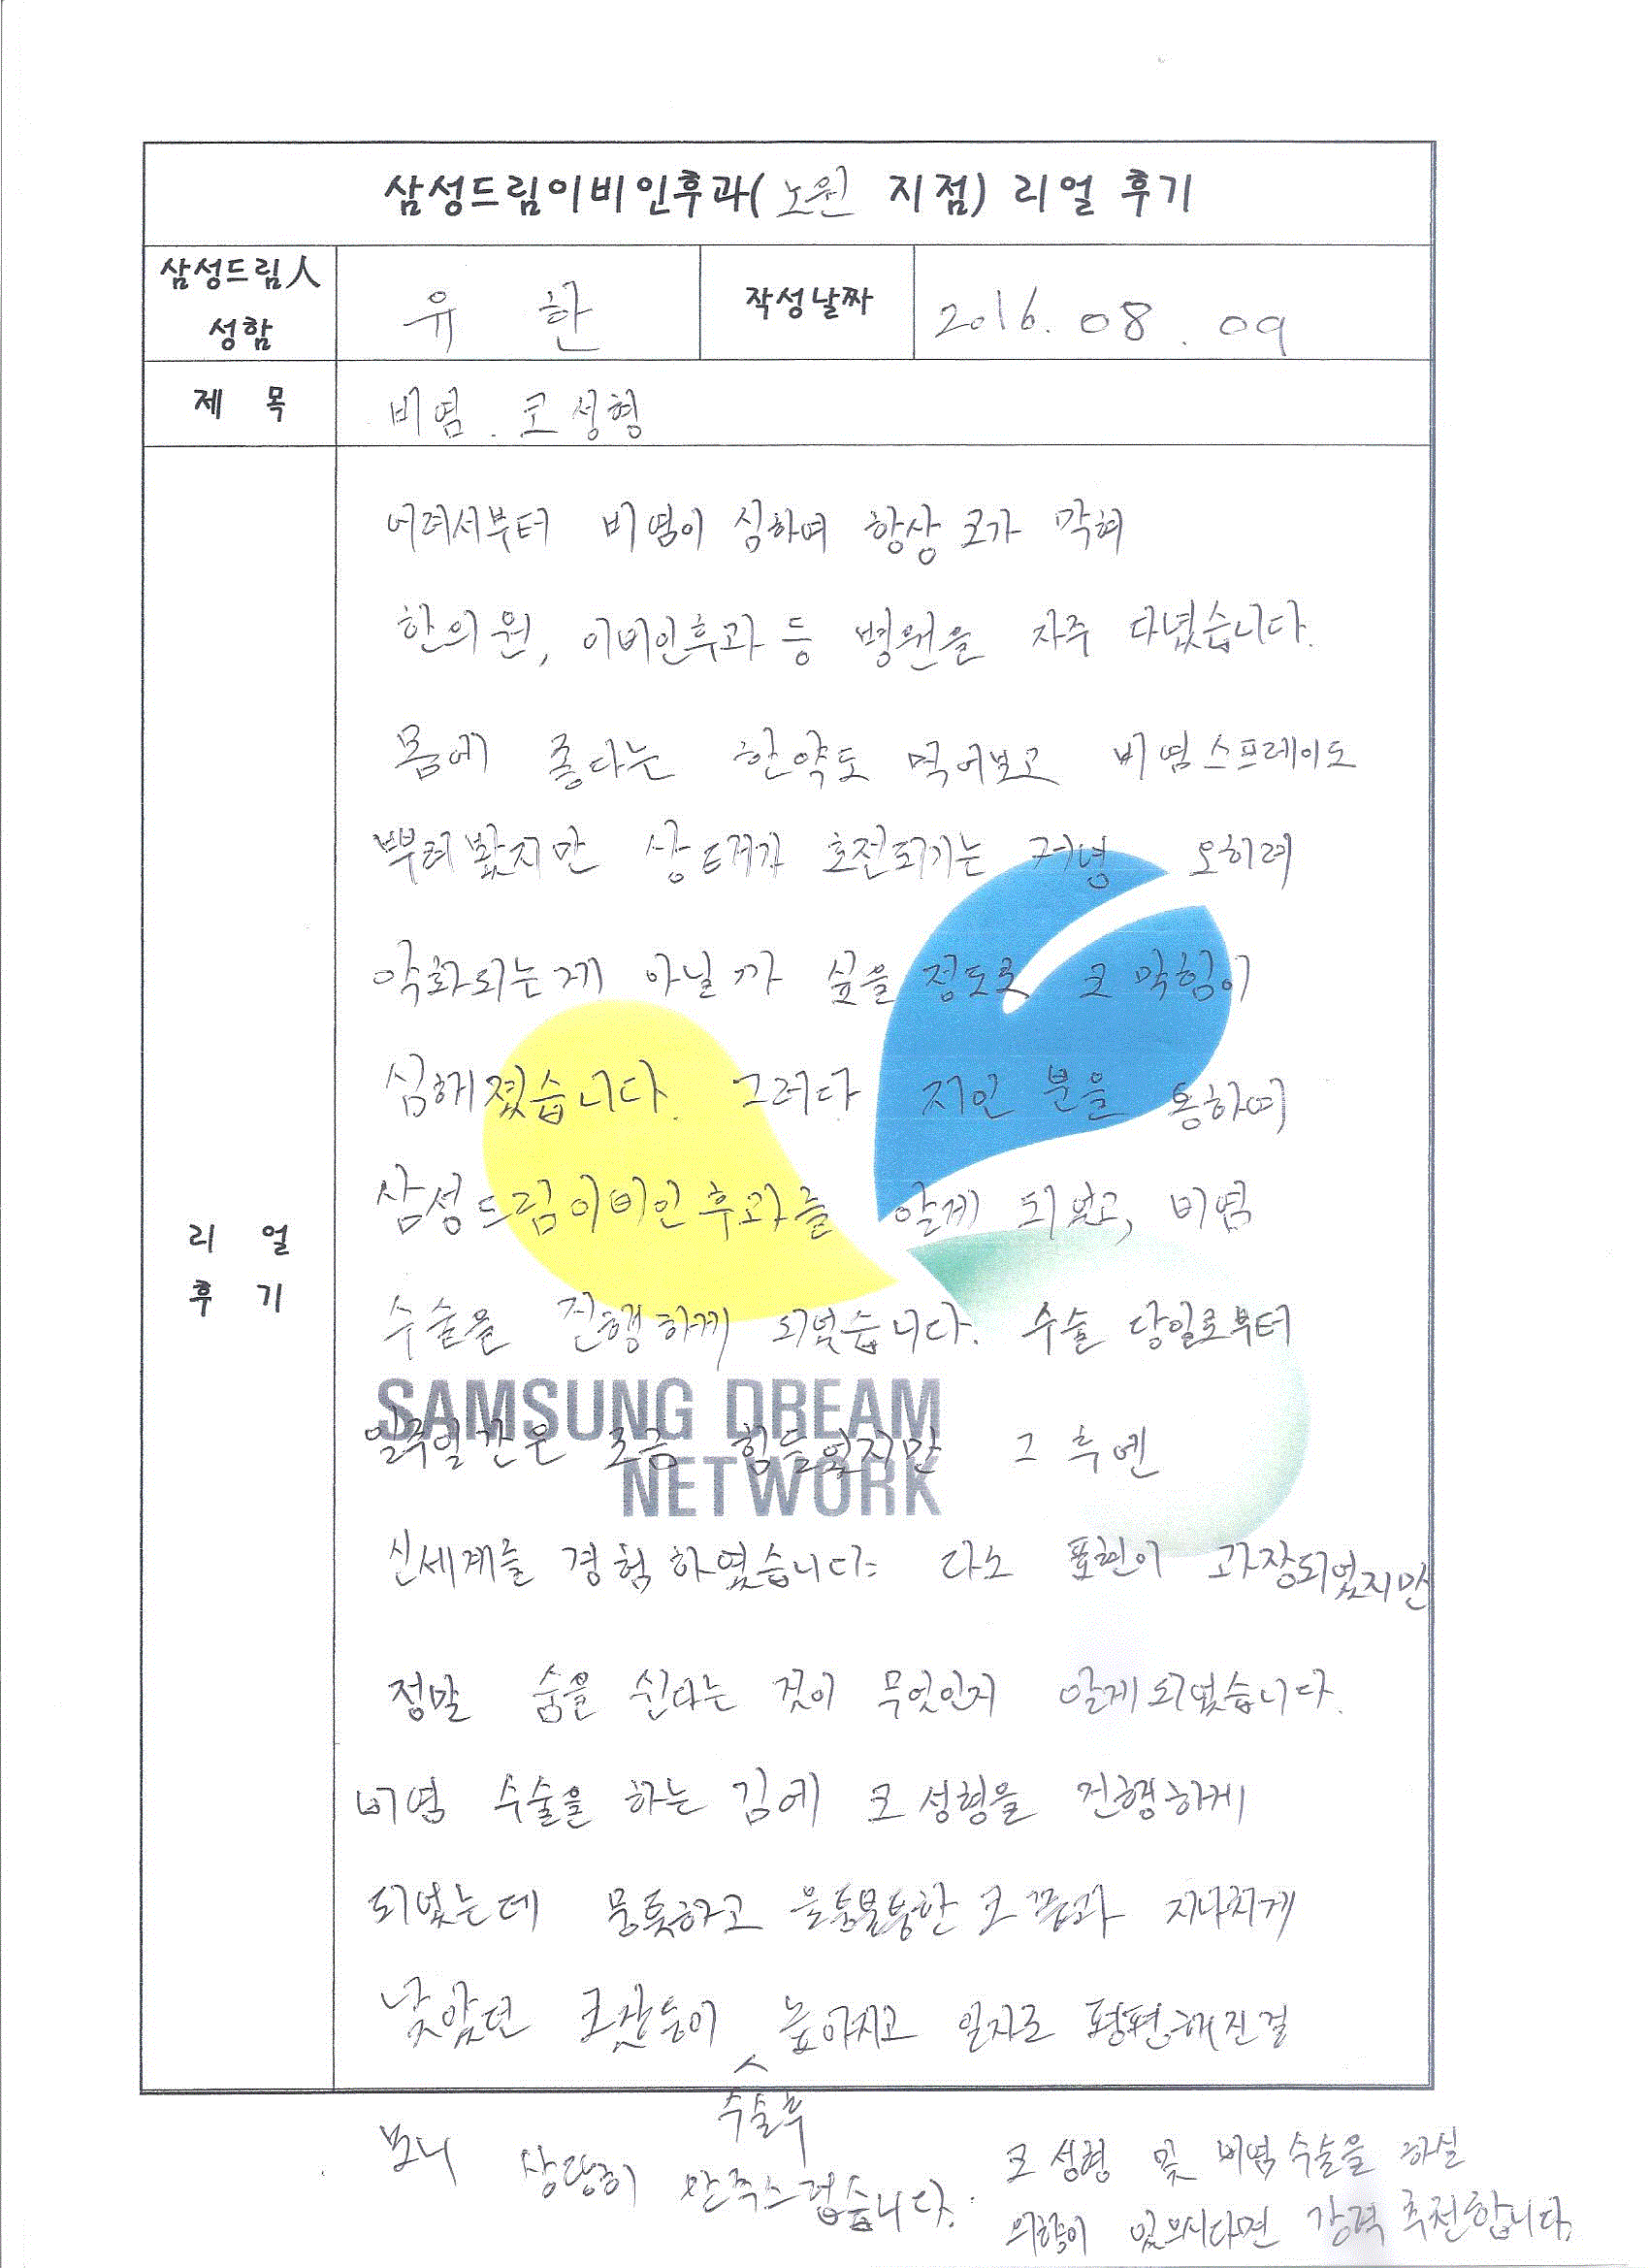 삼성드림이비인후과(노원 지점) 리얼 후기
삼성드림人 성함
유 한
작성날짜
2016. 08. 09
제 목
비염. 코성형
리 얼 후 기
어려서부터 비염이 심하여 항상 코가 막혀
한의원, 이비인후과 등 병원을 자주 다녔습니다.
몸에 좋다는 한약도 먹어보고 비염스프레이도
뿌려봤지만 상태가 호전되기는 커녕 오히려
악화되는게 아닐까 싶을 정도로 코 막힘이
심해졌습니다. 그러다 지인 분을 통하여
삼성드림이비인후과를 알게 되었고, 비염
수술을 진행하게 되었습니다. 수술 당일로부터
일주일간은 조금 힘들었지만 그 후엔
신세계를 경험하였습니다. 다소 표현이 과장되었지만
정말 숨을 쉰다는 것이 무엇인지 알게되었습니다.
비염 수술을 하는 김에 코 성형을 진행하게
되었는데 뭉툭하고 울퉁불퉁한 코 끝과 지나치게
낮았던 콧잔등이 높아지고 일자로 평편해진걸
수술후
보니 상당히 만족스럽습니다.
코 성형 및 비염수술을 하실
의향이 있으시다면 강력 추천합니다.
SAMSUNG DREAM
NETWORK